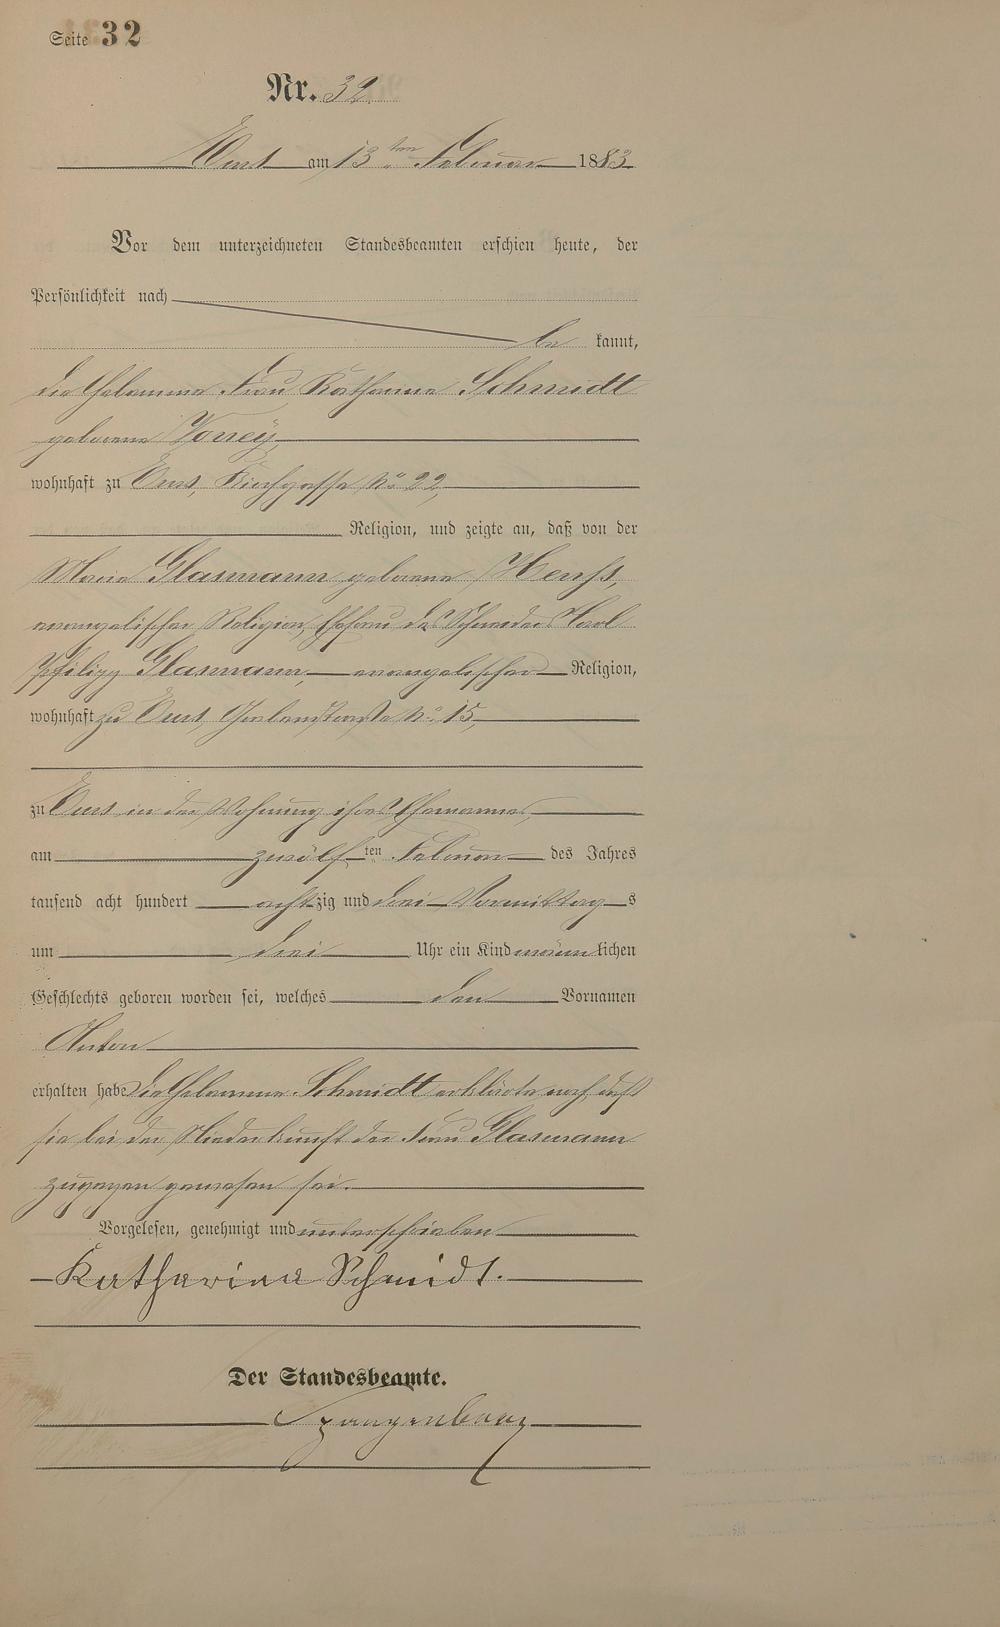 Seite 32
Nr. 32.
Ems am 13ten Februar 1883.
Vor dem unterzeichneten Standesbeamten erschien heute, der
Persönlichkeit nach
be kannt,
die Hebamme Frau Katharina Schmidt
geborene
wohnhaft zu Ems, Kirchgasse No 22,
Religion, und zeigte an, daß von der
Maria Glasmann geborene
evangelischer Religion, Ehefrau des Schneiders Karl
Philipp Glasmann, evangelischer Religion,
wohnhaft zu Ems, No 15,
zu Ems in der Wohnung ihres Ehemannes,
am zwölf ten Februar des Jahres
tausend acht hundert acht zig und drei Vormittag s
um drei Uhr ein Kind männ lichen
Geschlechts geboren worden sei, welches den Vornamen
Anton
erhalten habe. Die Hebamme Schmidt erklärte noch, daß
sie bei der Niederkunft der Frau Glasmann
zugegen gewesen sei.
Vorgelesen, genehmigt und unterschrieben
Katharina Schmidt.
Der Standesbeamte.
Spangenberg